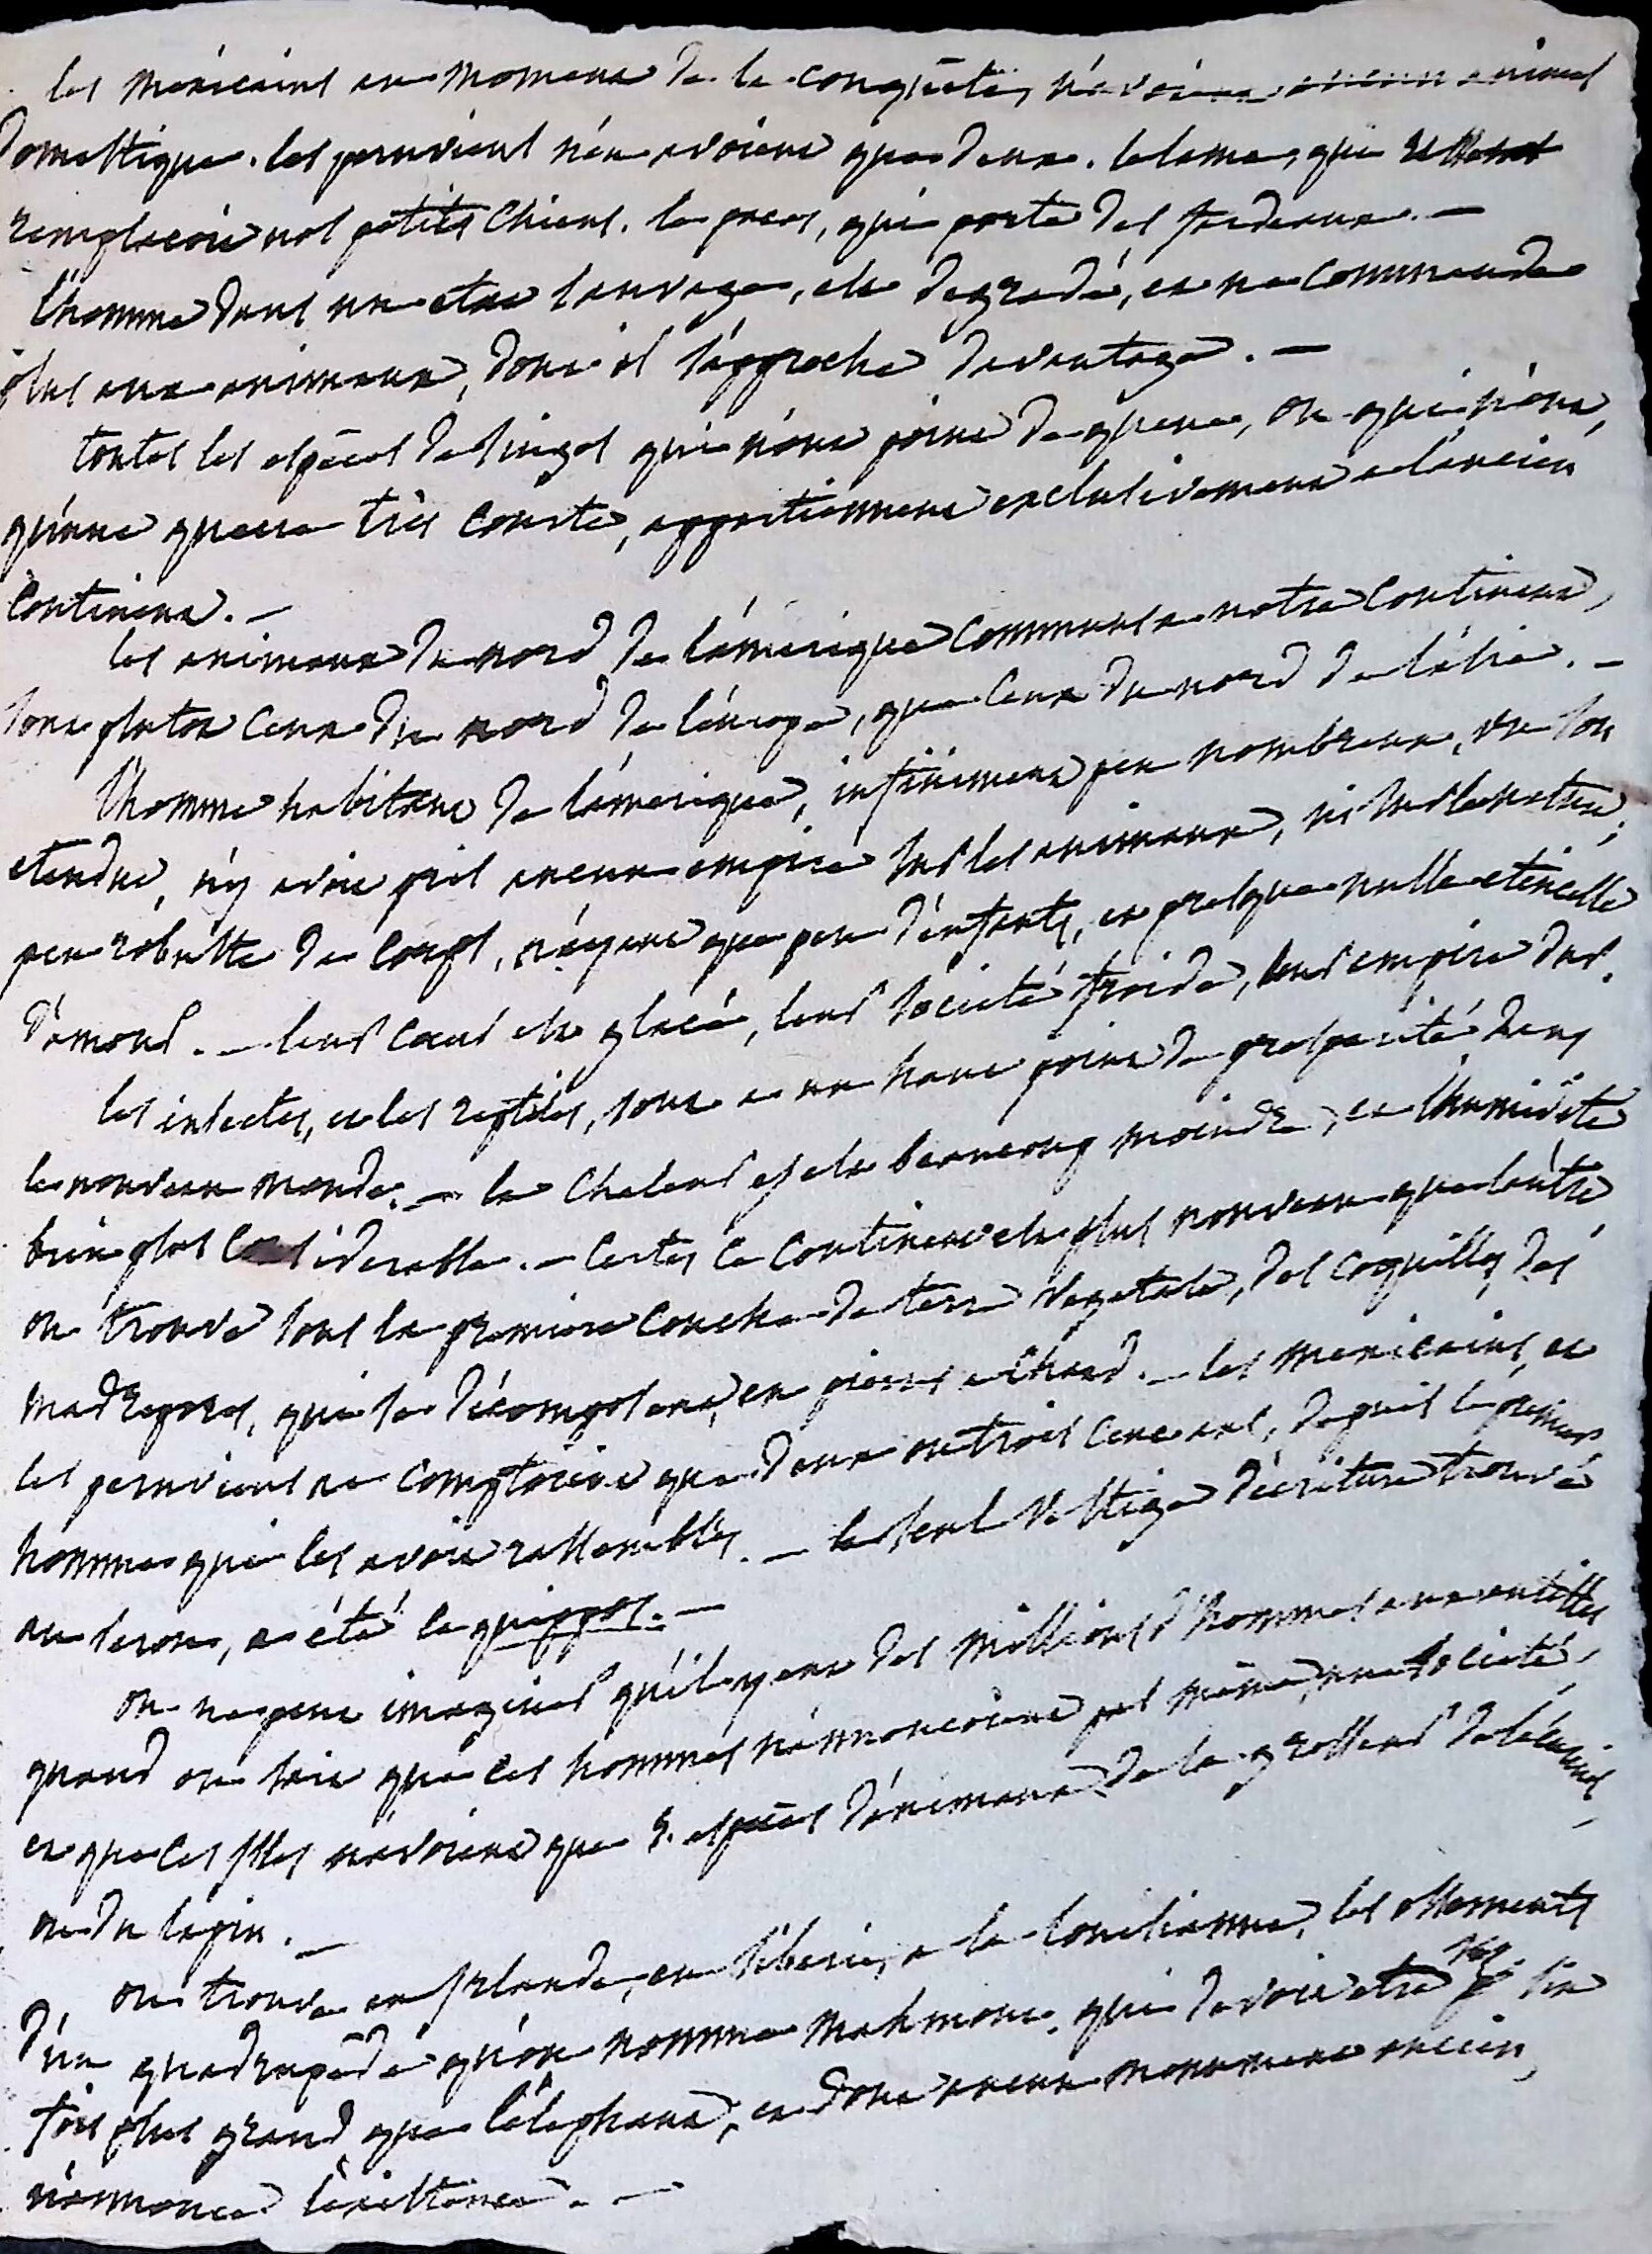 les mexicains au moment de la conquête, n'avoient aucun animal
domestique. les peruviens n'en avoient que deux. le lama, qui
remplaçoit nos petits chiens. le pacos, qui porte des fardeaux. —
l'homme dans un etat sauvage, est degradé, et ne commande
plus aux animaux, dont il s'approche davantage. —
toutes les especes de singes qui n'ont point de queue, ou qui n'ont,
qu'une queue très courte, appartiennent exclusivement a l'ancien
continent. —
les animaux du nord de l'amerique communs a notre continent,
sont plutot ceux du nord de l'europe, que ceux du nord de l'asie. —
l'homme habitant de l'amerique, infiniment peu nombreux, vu son
etendue, n'y avoit pris aucun empire sur les animaux, ni sur la nature;
peu robuste de corps, n'ayant que peu d'enfants, et presque nulle etincelle
d'amour. — leur cœur est glacé, leur société froide, leur empire dur.
les insectes, et les reptiles, sont a un haut point de prosperité dans
le nouveau monde. — la chaleur y est beaucoup moindre, et l'humidité
bien plus considerable. — certes ce continent est plus nouveau que l'autre
on trouve sous la premiere couche de terre vegetale, des coquilles, des
madrepores, qui se décomposent, en pierre a chaud. — les mexicains, et
les peruviens ne comptoient que deux ou trois cent ans, depuis le premier
homme qui les avoit rassemblés. — le seul vestige d'écriture trouvé
au perou, a été le quippos. —
on ne peut imaginer qu'il y eut des millions d'hommes aux antilles
quand on sait que ces hommes n'annonçoient pas même, une société,
et que ces isles n'avoient que 5. especes d'animaux de la grosseur de l'écureuil
ou du lapin. —
on trouve en irlande, en siberie, a la louisianne, les ossements
d'un quadrupede qu'on nomme mahmout, qui devoit etre six
fois plus grand que l'elephant, et dont aucun monument ancien,
n'annonce l'existence. —